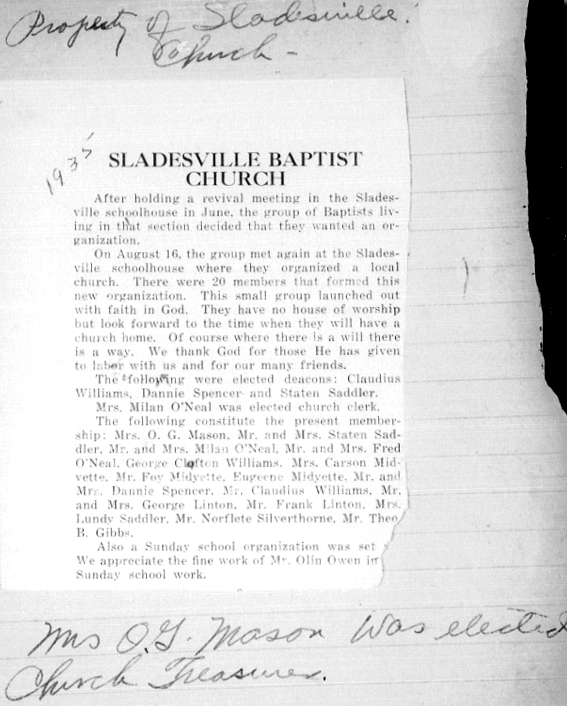 Property of Sladesville
Church -
1935
SLADESVILLE BAPTIST
CHURCH
After holding a revival meeting in the Slades-
ville schoolhouse in June, the group of Baptists liv-
ing in that section decided that they wanted an or-
ganization.
On August 16, the group met again at the Slades-
ville schoolhouse where they organized a local
church. There were 20 members that formed this
new organization. This small group launched out
with faith in God. They have no house of worship
but look forward to the time when they will have a
church home. Of course where there is a will there
is a way. We thank God for those He has given
to labor with us and for our many friends.
The following were elected deacons: Claudius
Williams, Dannie Spencer and Staten Saddler.
Mrs. Milan O'Neal was elected church clerk.
The following constitute the present member-
ship: Mrs. O. G. Mason, Mr. and Mrs. Staten Sad-
dler, Mr. and Mrs. Milan O'Neal, Mr. and Mrs. Fred
O'Neal, George Clafton Williams, Mrs. Carson Mid-
yette, Mr. Foy Midyette, Eugeene Midyette, Mr. and
Mrs. Dannie Spencer, Mr. Claudius Williams, Mr.
and Mrs. George Linton, Mr. Frank Linton, Mrs.
Lundy Saddler, Mr. Norflete Silverthorne, Mr. Theo
B. Gibbs.
Also a Sunday school organization was set
We appreciate the fine work of Mr. Olin Owen in
Sunday school work.
Mrs O.G. Mason was elected
Church Treasurer.